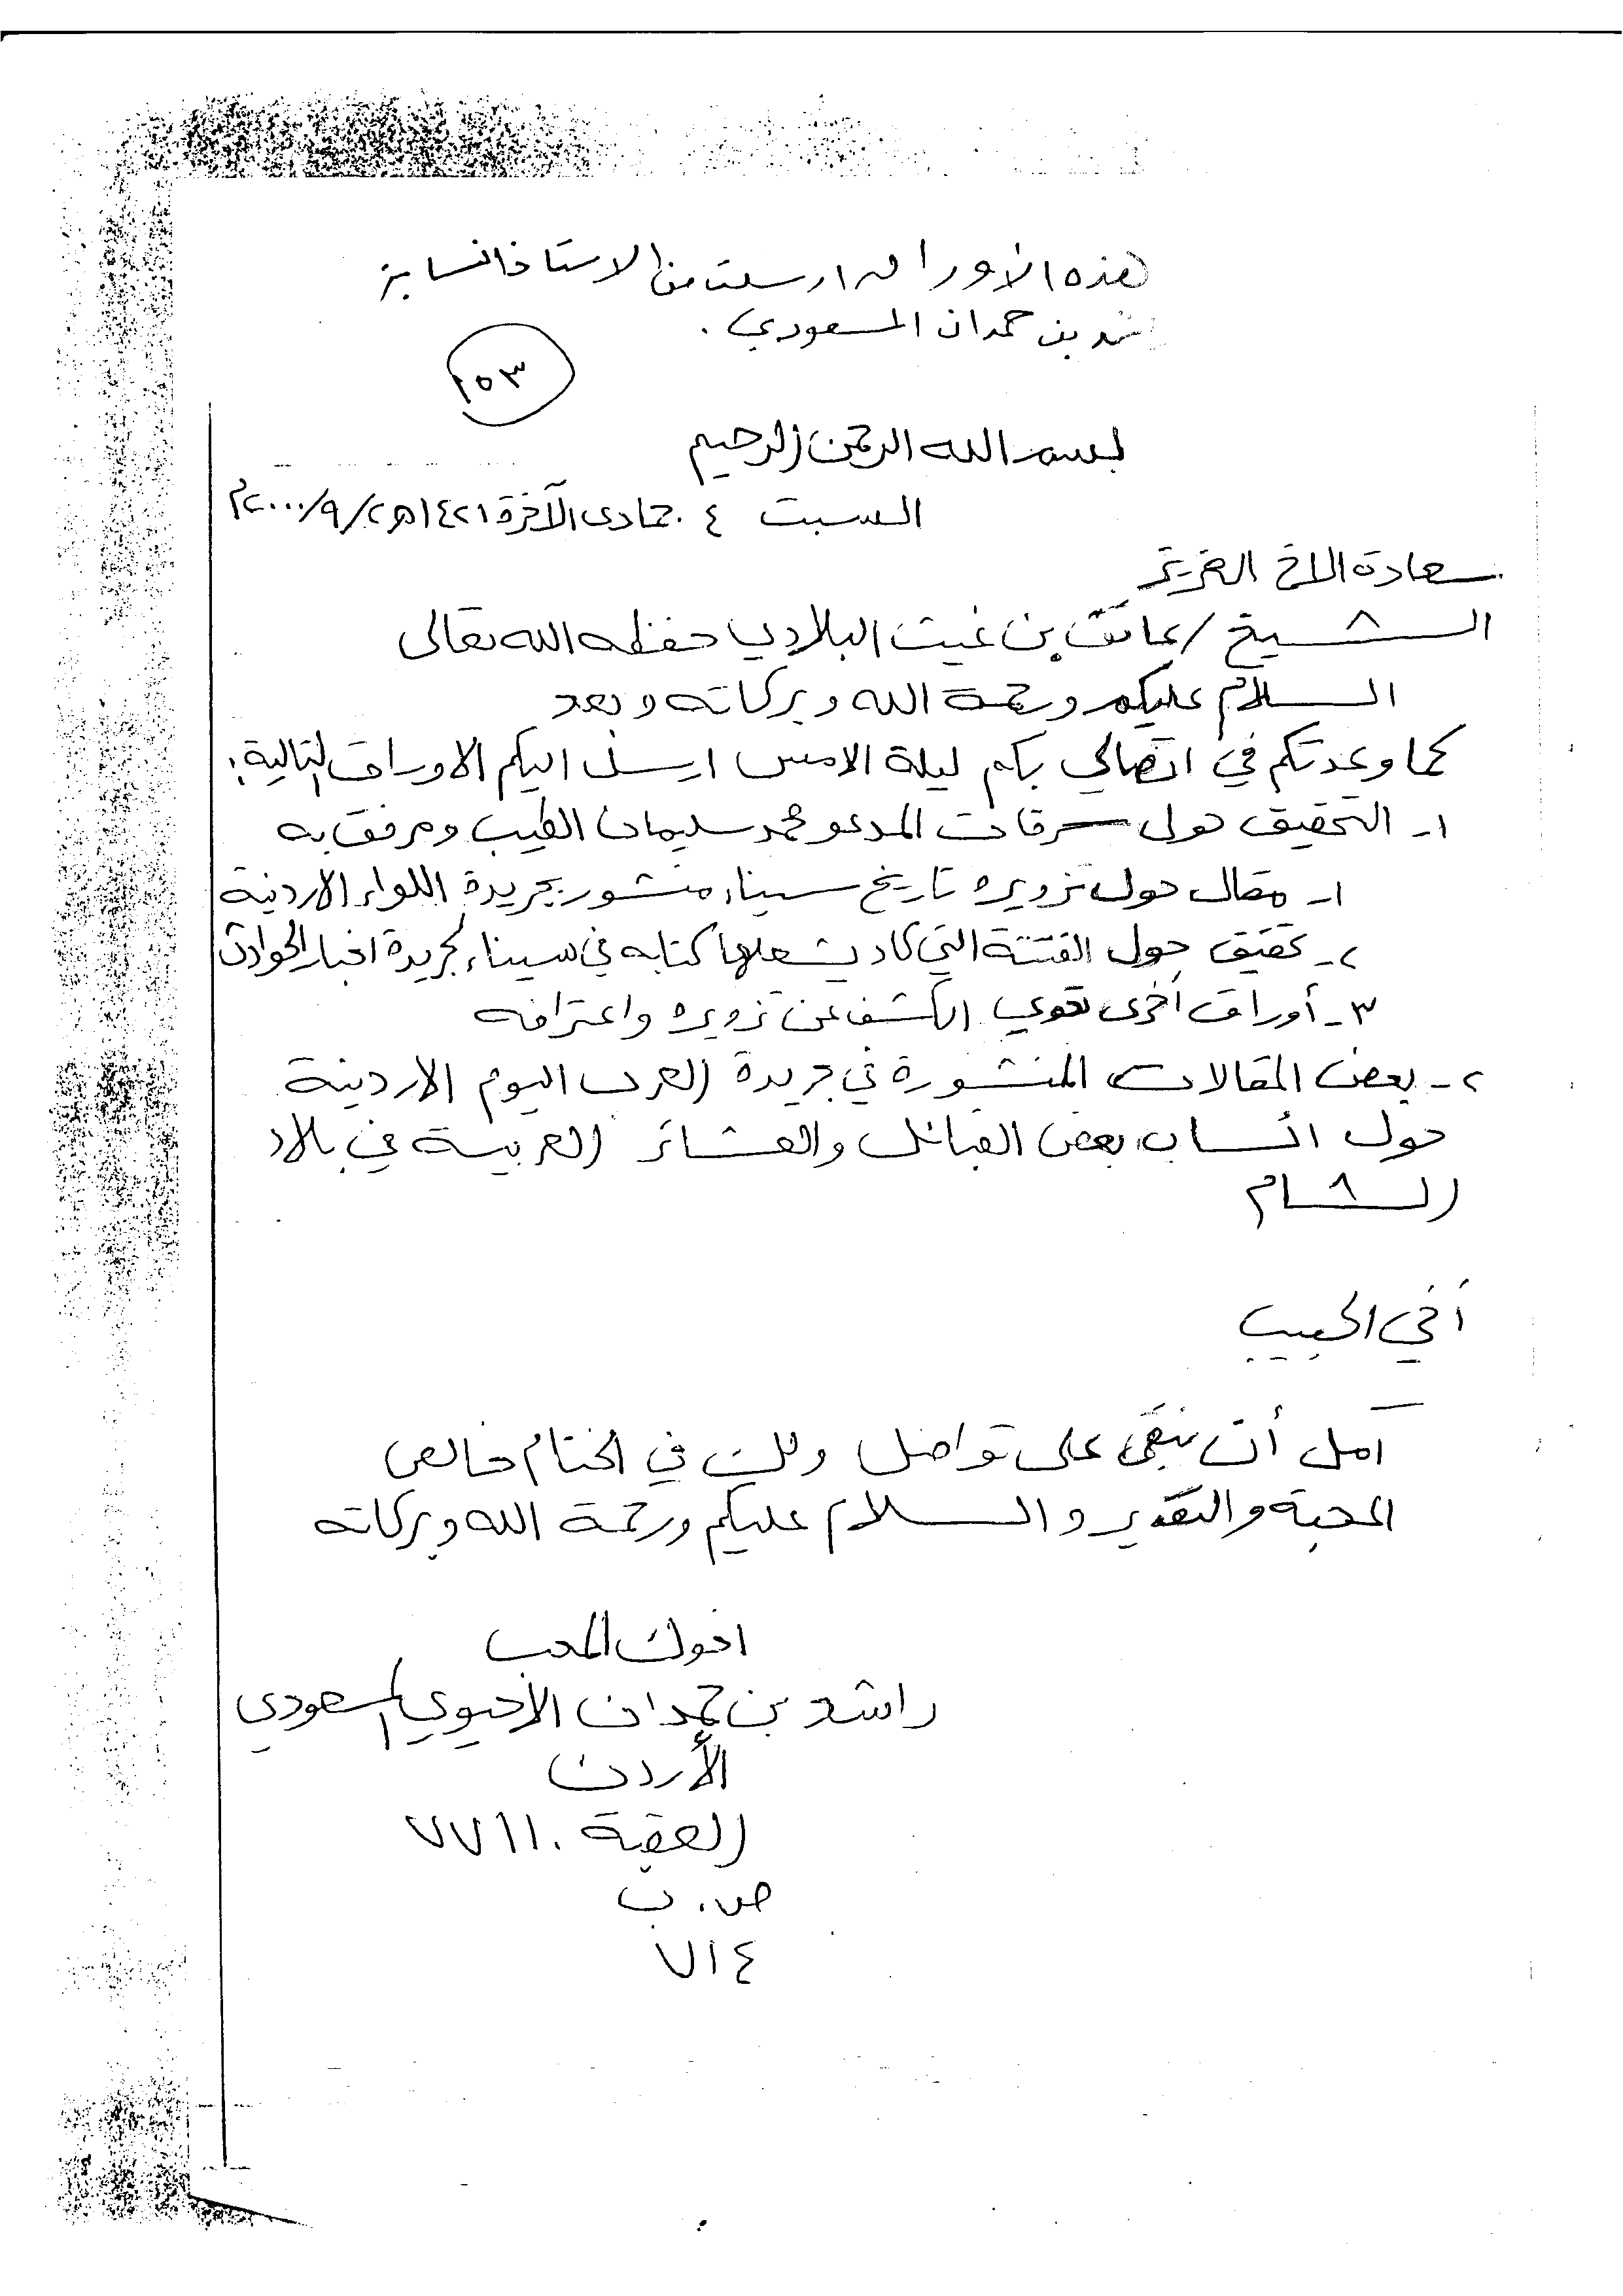 هذه الأوراق ارسلت من الاستاذ النسابة
شد بن حمدان المسعودي .
١٥٣
بسم الله الرحمن الرحيم
السبت ٤ جمادى الآخرة ١٤٢١هـ ٢/٩/٢٠٠٠م
سعادة الاخ العزيز
الشيخ / عاتق بن غيث البلادي حفظه الله تعالى
السلام عليكم ورحمة الله وبركاته وبعد
كما وعدتكم في اتصالي بكم ليلة الامس ارسل اليكم الاوراق التالية:
١- التحقيق حول سرقات المدعو محمد سليمان الطيب ومرفق به
١- مقال حول تزويره تاريخ سيناء منشور بجريدة اللواء الاردنية
٢- تحقيق حول الفتنة التي كاد يشعلها كتابه في سيناء بجريدة اخبار الحوادث
٣- أوراق أخرى تحوي الكشف عن تزويره واعترافه
٢- بعض المقالات المنشورة في جريدة العرب اليوم الاردنية
حول انساب بعض القبائل والعشائر العربية في بلاد
الشام
أخي الحبيب
آمل أن نبقى على تواصل ولك في الختام خالص
المحبة والتقدير والسلام عليكم ورحمة الله وبركاته
اخوك المحب
راشد بن حمدان الاحيوي المسعودي
الأردن
العقبة ٧٧١١٠
ص. ب
٧١٤